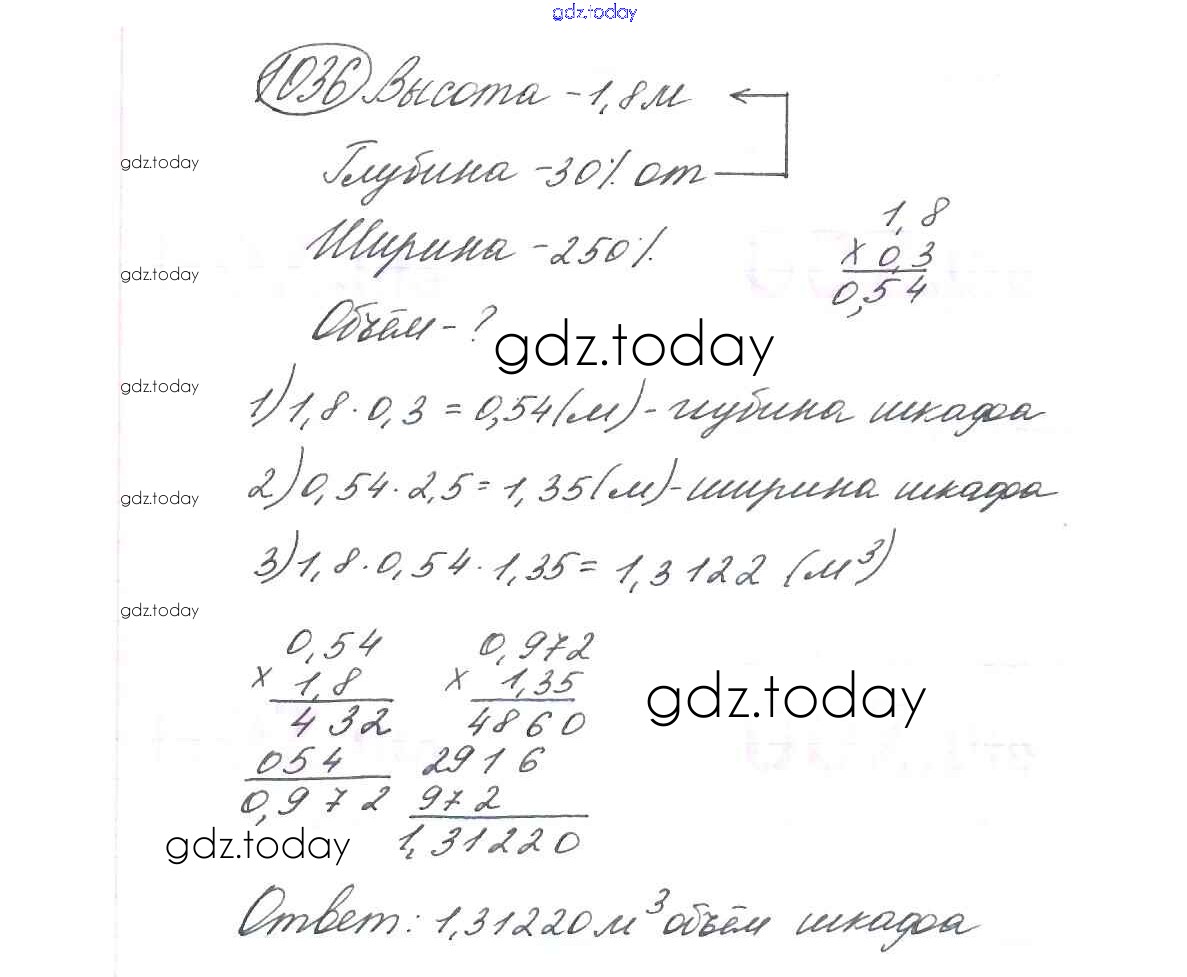 gdz.today
1036 Высота - 1,8 м
gdz.today
Глубина - 30% от
Ширина - 250%
1,8
× 0,3
0,54
gdz.today
Объём - ?
gdz.today
gdz.today
1) 1,8 · 0,3 = 0,54 (м) - глубина шкафа
2) 0,54 · 2,5 = 1,35 (м) - ширина шкафа
gdz.today
3) 1,8 · 0,54 · 1,35 = 1,3122 (м³)
gdz.today
0,54
× 1,8
432
054
0,972
0,972
× 1,35
4860
2916
972
1,31220
gdz.today
gdz.today
Ответ: 1,31220 м³ объём шкафа